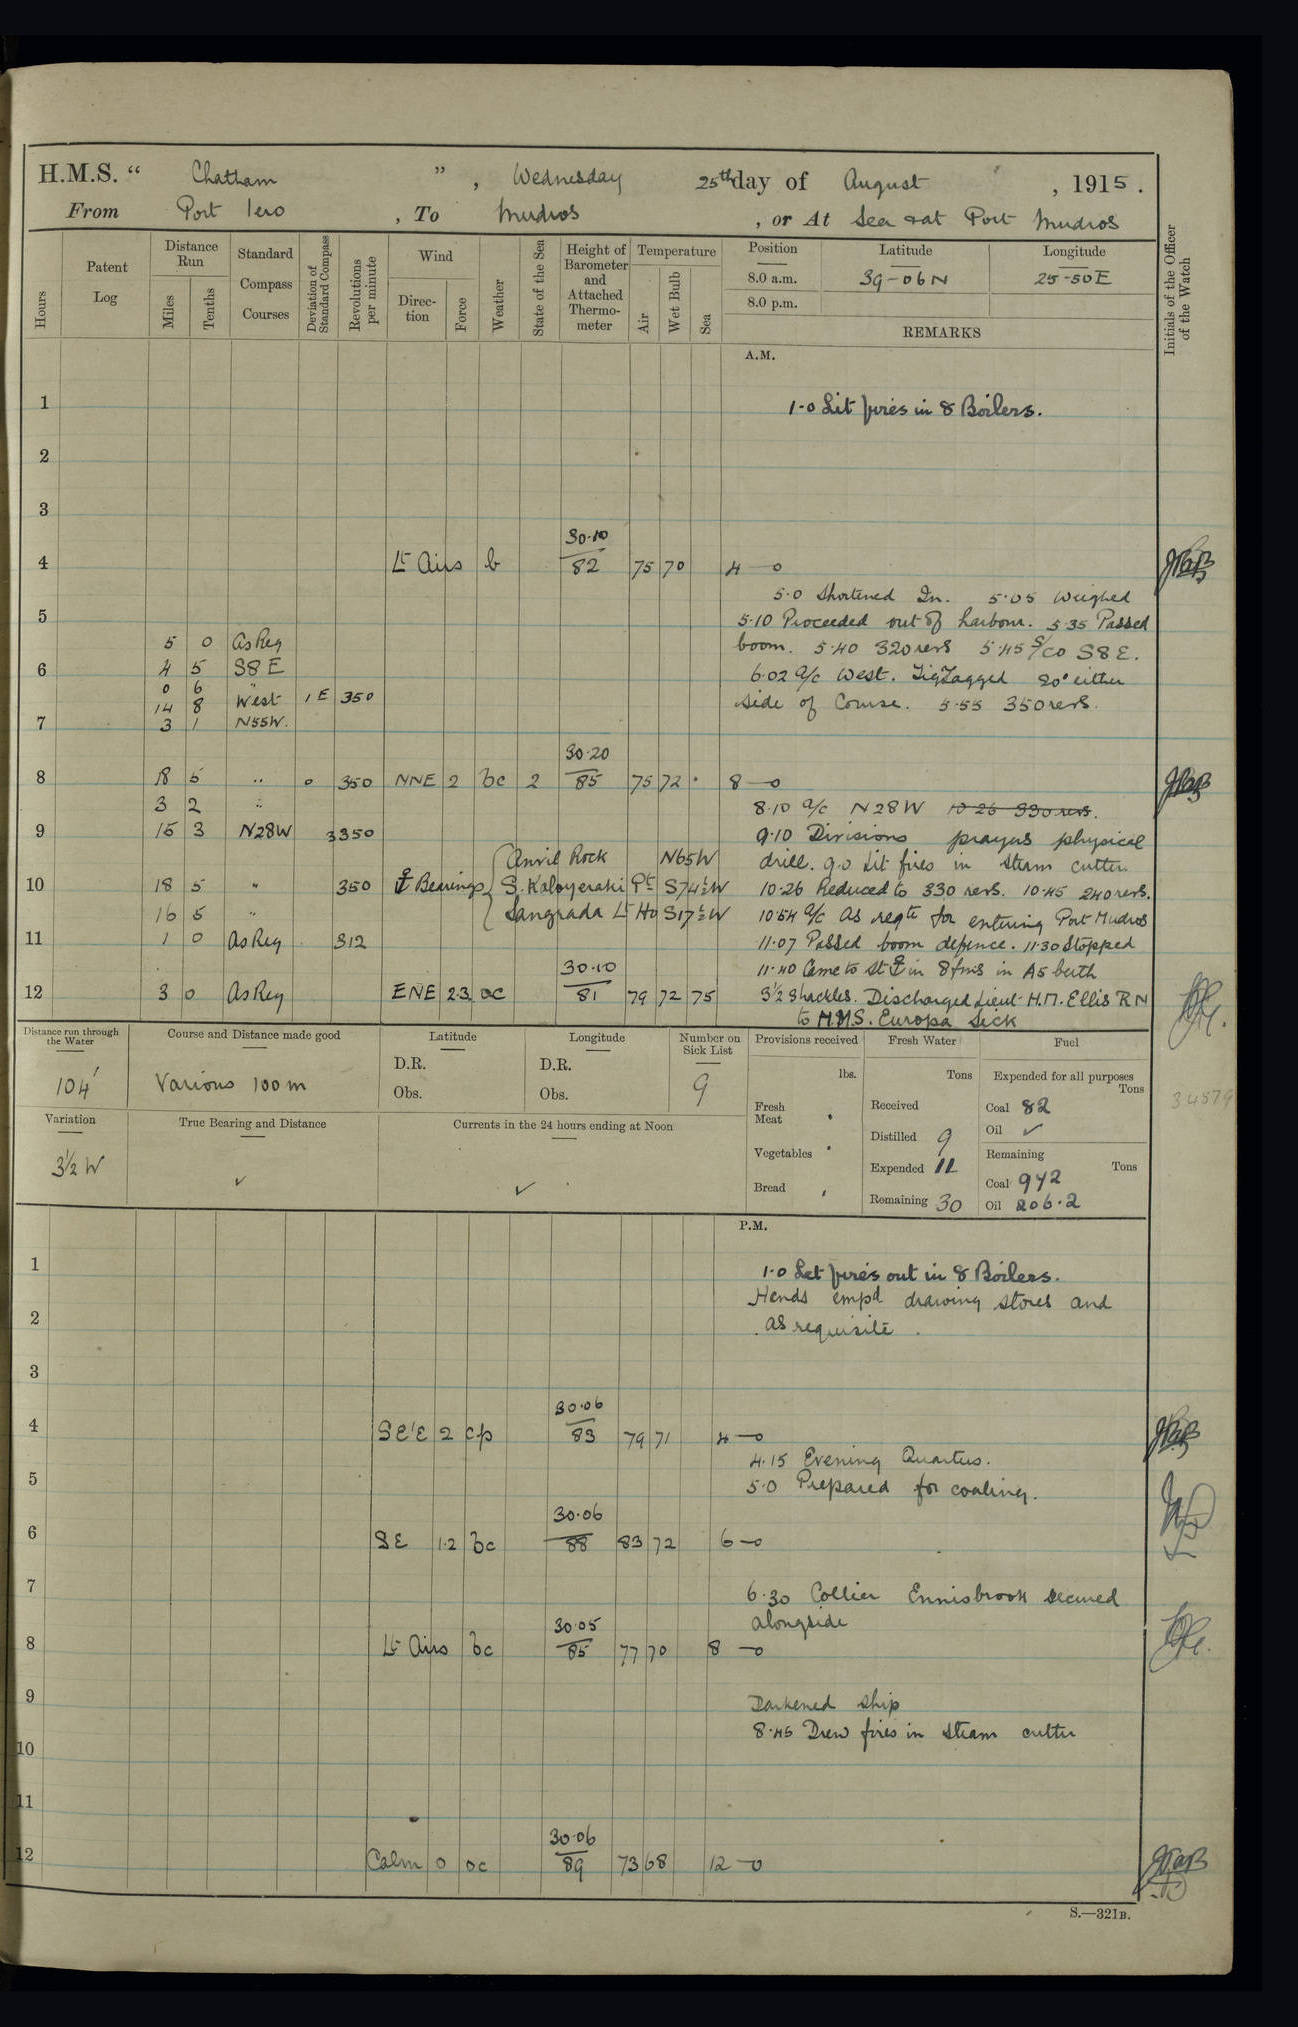 H.M.S. “ Chatham ” , Wednesday 25th day of August , 1915 .
From Port Iero , To Mudros , or At Sea & at Port Mudros
Hours
Patent Log
Distance Run
Miles
Tenths
Standard Compass Courses
Deviation of Standard Compass
Revolutions per minute
Wind
Direc-tion
Force
Weather
State of the Sea
Height of Barometer and Attached Thermo-meter
Temperature
Air
Wet Bulb
Sea
Position Latitude Longitude
8.0 a.m. 39-06N 25-50E
8.0 p.m.
REMARKS
Initials of the Officer of the Watch
A.M.
1 1·0 Lit fires in 8 Boilers.
2
3
30·10
4 Lt Airs b 82 75 70 4—0
5·0 Shortened In. 5·05 Weighed
5 5·10 Proceeded out of harbour. 5·35 Passed
5 0 As Req boom. 5·40 320 revs 5·45 S/Co S8E.
6 4 5 S8E 6·02 A/c West. ZigZagged 20° either
0 6 "
14 8 West 1E 350 side of Course. 5·55 350 revs.
7 3 1 N55W.
30·20
8 18 5 " 0 350 NNE 2 bc 2 85 75 72 8—0
3 2 " 8·10 A/c N28W 10·26 330 revs.
9 15 3 N28W 3350 9·10 Divisions prayers physical
Anvil Rock N65W drill. 9·0 Lit fires in steam cutter
10 18 5 " 350 Bearings S. Kaloyeraki Pt S74½W 10·26 Reduced to 330 revs. 10·45 240 revs.
16 5 " Sangrada Lt Ho S17½W 10·54 A/c as reqte for entering Port Mudros
11 1 0 As Req 312 11·07 Passed boom defence. 11·30 Stopped
30·10 11·40 Came to St in 8 fms in A5 berth
12 3 0 As Req ENE 2·3 oc 81 79 72 75 3½ Shackles. Discharged Lieut H.M. Ellis RN
to H.M.S. Europa Sick
Distance run through the Water
104'
Course and Distance made good
Various 100m
Latitude
D.R.
Obs.
Longitude
D.R.
Obs.
Number on Sick List
9
Provisions received
lbs.
Fresh Meat
Vegetables
Bread
Fresh Water
Tons
Received
Distilled 9
Expended 11
Remaining 30
Fuel
Expended for all purposes
Tons
Coal 82
Oil ✓
Remaining
Tons
Coal 942
Oil 206·2
34579
Variation
3½ W
True Bearing and Distance
✓
Currents in the 24 hours ending at Noon
✓
P.M.
1 1·0 Let fires out in 8 Boilers.
Hands empd drawing stores and
2 as requisite.
3
30·06
4 SE'E 2 cp 83 79 71 4—0
4·15 Evening Quarters.
5 5·0 Prepared for coaling.
30·06
6 SE 1·2 bc 88 83 72 6—0
7 6·30 Collier Ennisbrook secured
30·05 alongside
8 Lt Airs bc 85 77 70 8—0
9 Darkened ship
8·45 Drew fires in steam cutter
10
11
30·06
12 Calm 0 oc 89 73 68 12—0
S.—321B.